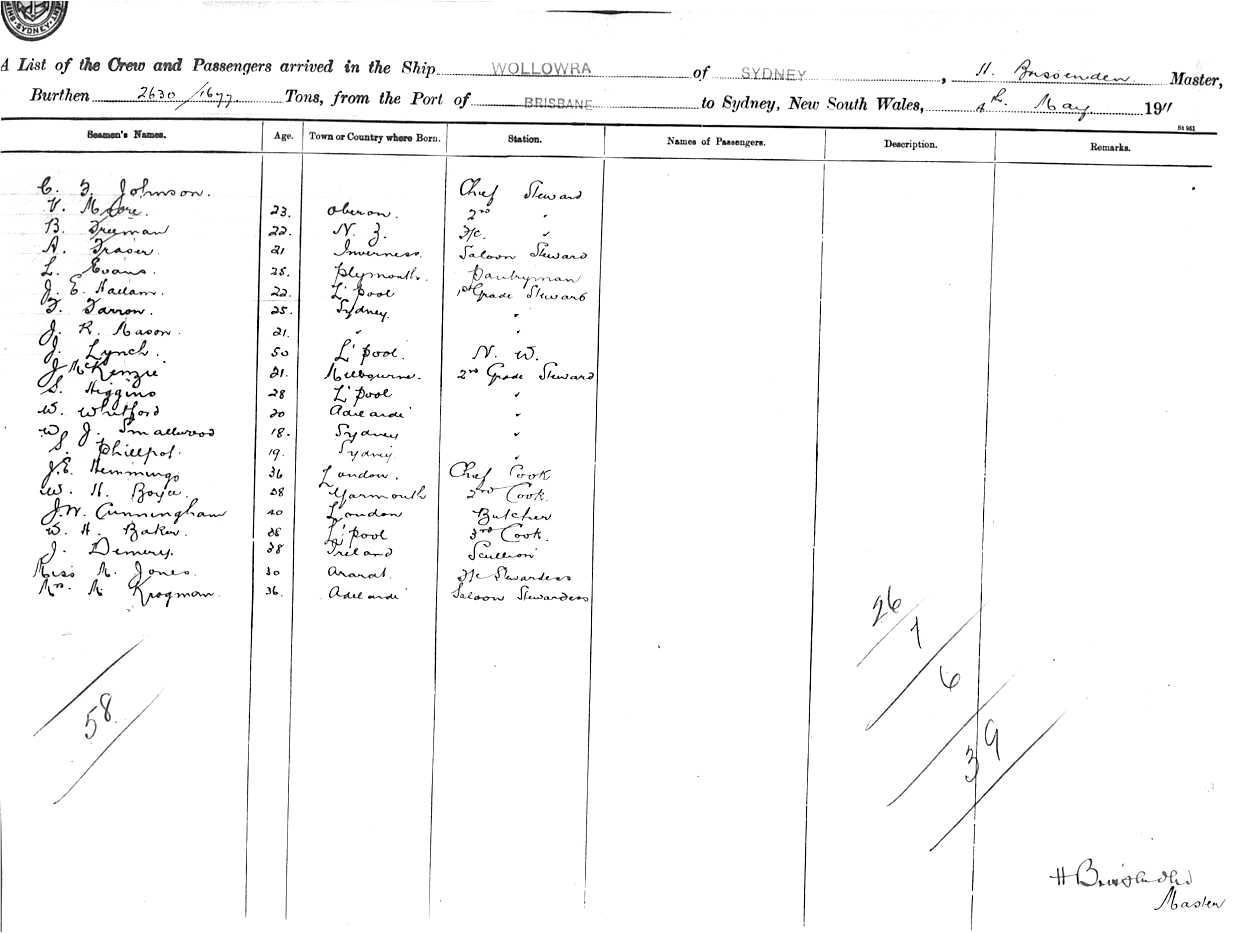 SYDNEY
A List of the Crew and Passengers arrived in the Ship WOLLOWRA of SYDNEY, H. Brissenden Master,
Burthen 2630/1677 Tons, from the Port of BRISBANE to Sydney, New South Wales, 4th May 1911
St 961
Seamen's Names. Age. Town or Country where Born. Station. Names of Passengers. Description. Remarks.
C. F. Johnson. Chief Steward
V. Moore. 23. Oberon. 2nd "
B. Freeman 22. N. Z. F/C. "
A. Fraser. 21 Inverness. Saloon Steward
L. Evans. 25. Plymouth. Pantryman
J. E. 22. L'pool 1st Grade Steward
F. Farron. 25. Sydney. "
J. R. Mason. 21. " "
J. Lynch. 50 L'pool. N. W.
J McKenzie 21. Melbourne. 2nd Grade Steward
S. Higgins 28 L'pool "
W. Whitford 20 Adelaide "
W. J. Smallwood 18. Sydney "
S. Phillpot. 19. Sydney "
J.E. Hemmings 36 London. Chief Cook
W. H. Boyce. 38 Yarmouth 2nd Cook.
J.W. Cunningham 40 London Butcher
W. H. Baker. 38 L'pool 3rd Cook.
J. Demery. 38 Ireland Scullion
Miss M. Jones. 30 Ararat. F/C Stewardess
Mrs. M. Krogman. 36. Adelaide Saloon Stewardess
26
7
6
58.
39
H Brissenden
Master